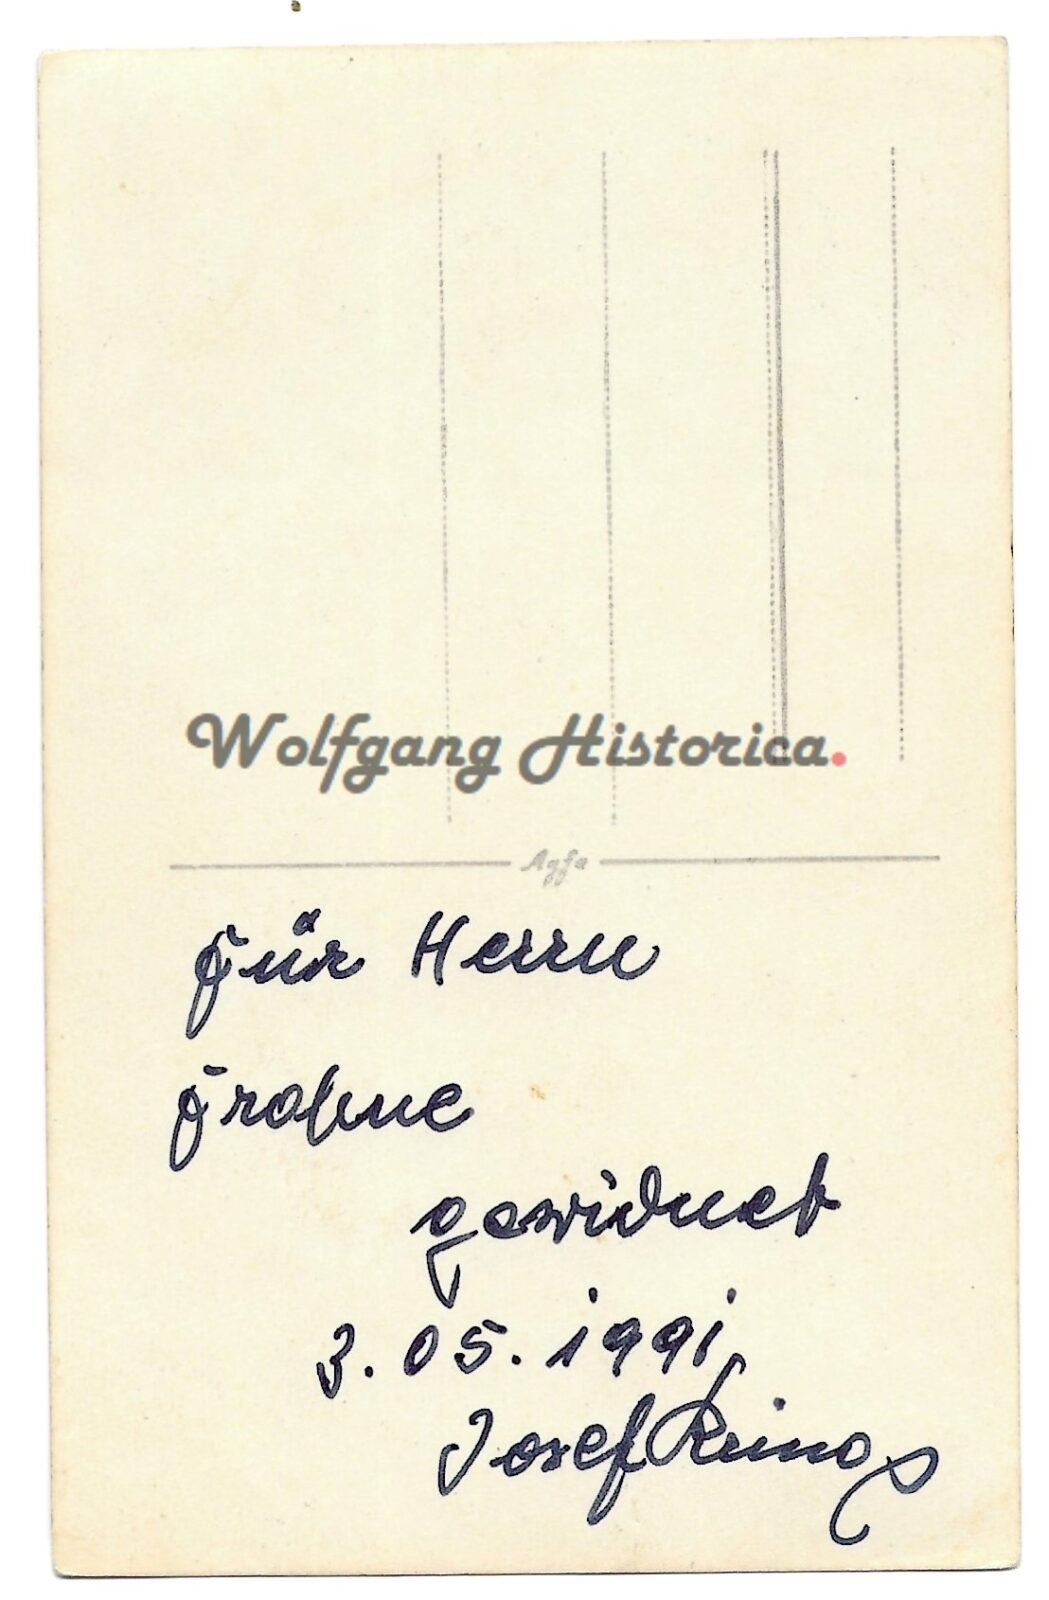 Wolfgang Historica.
Agfa
Für Herrn
Frohne
gewidmet
3.05.1991
Josef Krings